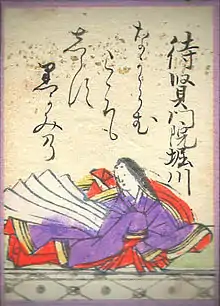 待賢門院堀川
なかゝらむ
心も
しらす
黒かみの